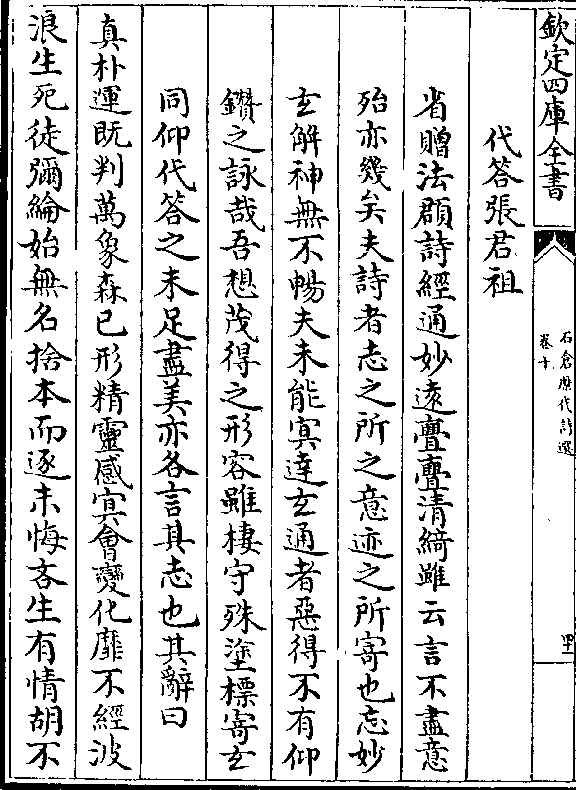 欽定四庫全書
石倉歷代詩選
卷十
四十
代答張君祖
省贈法頵詩經通妙遠亹亹清綺雖云言不盡意
殆亦幾矣夫詩者志之所之意迹之所寄也忘妙
玄解神無不暢夫未能㝠達玄通者惡得不有仰
鑽之詠哉吾想茂得之形容雖棲守殊塗標寄玄
同仰代答之未足盡美亦各言其志也其辭曰
真朴運既判萬象森已形精靈感㝠會變化靡不經波
浪生死徒彌綸始無名捨本而逐末悔吝生有情胡不